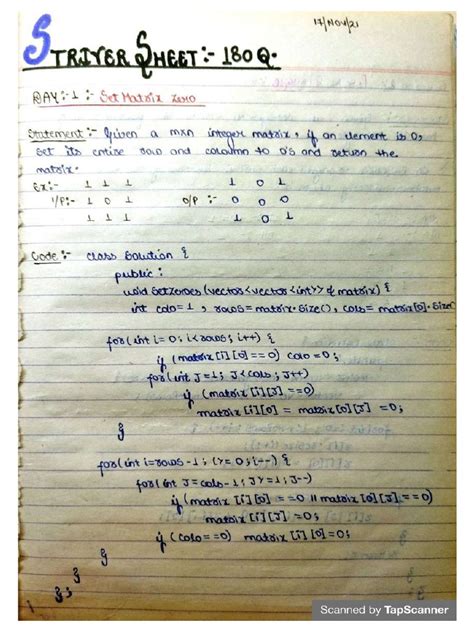 17/NOV/21
STRIVER SHEET:- 180 Q.
DAY:-1 :- Set Matrix Zero
Statement:- Given a mxn integer matrix, if an element is 0,
set its entire row and coloumn to 0's and return the
matrix.
Ex:- 1 1 1 1 0 1
I/P:- 1 0 1 O/P:- 0 0 0
1 1 1 1 0 1
Code:- class Solution {
public:
void setZeroes(vector<vector<int>> & matrix) {
int colo=1, rows=matrix.size(), cols=matrix[0].size
for(int i=0; i<rows; i++) {
if (matrix[i][0]==0) colo=0;
for(int J=1; J<cols; J++)
if (matrix[i][J]==0)
matrix[i][0] = matrix[0][J] =0;
}
for(int i=rows-1; i>=0; i--) {
for(int J=cols-1; J>=1; J--)
if(matrix[i][0]==0 || matrix[0][J]==0)
matrix[i][J]=0;
if (colo==0) matrix[i][0]=0;
}
}
};
Scanned by TapScanner